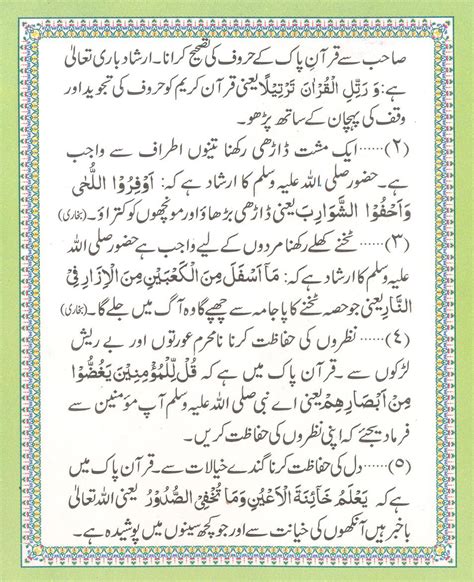 صاحب سے قرآنِ پاک کے حروف کی تصحیح کرانا۔ ارشاد باری تعالیٰ
ہے: وَ رَتِّلِ الْقُرْاٰنَ تَرْتِیْلًا یعنی قرآن کریم کو حروف کی تجوید اور
وقف کی پہچان کے ساتھ پڑھو۔
(۲)..... ایک مشت ڈاڑھی رکھنا تینوں اطراف سے واجب
ہے۔ حضور صلی اللہ علیہ وسلم کا ارشاد ہے کہ: اَوْفِرُوْا اللُّحٰی
وَاَحْفُوْا الشَّوَارِبَ یعنی ڈاڑھی بڑھاؤ اور مونچھوں کو کتراؤ۔ (بخاری)
(۳)..... ٹخنے کھلے رکھنا مردوں کے لیے واجب ہے حضور صلی اللہ
علیہ وسلم کا ارشاد ہے کہ: مَا اَسْفَلَ مِنَ الْکَعْبَیْنِ مِنَ الْاِزَارِ فِی
النَّارِ یعنی جو حصہ ٹخنے کا پاجامہ سے چھپے گا وہ آگ میں جلے گا۔ (بخاری)
(۴)..... نظروں کی حفاظت کرنا نامحرم عورتوں اور بے ریش
لڑکوں سے۔ قرآن پاک میں ہے کہ قُلْ لِّلْمُؤْمِنِیْنَ یَغُضُّوْا
مِنْ اَبْصَارِهِمْ یعنی اے نبی صلی اللہ علیہ وسلم آپ مؤمنین سے
فرما دیجئے کہ اپنی نظروں کی حفاظت کریں۔
(۵)..... دل کی حفاظت کرنا گندے خیالات سے۔ قرآن پاک میں
ہے کہ یَعْلَمُ خَآئِنَةَ الْاَعْیُنِ وَمَا تُخْفِی الصُّدُوْرُ یعنی اللہ تعالیٰ
باخبر ہیں آنکھوں کی خیانت سے اور جو کچھ سینوں میں پوشیدہ ہے۔